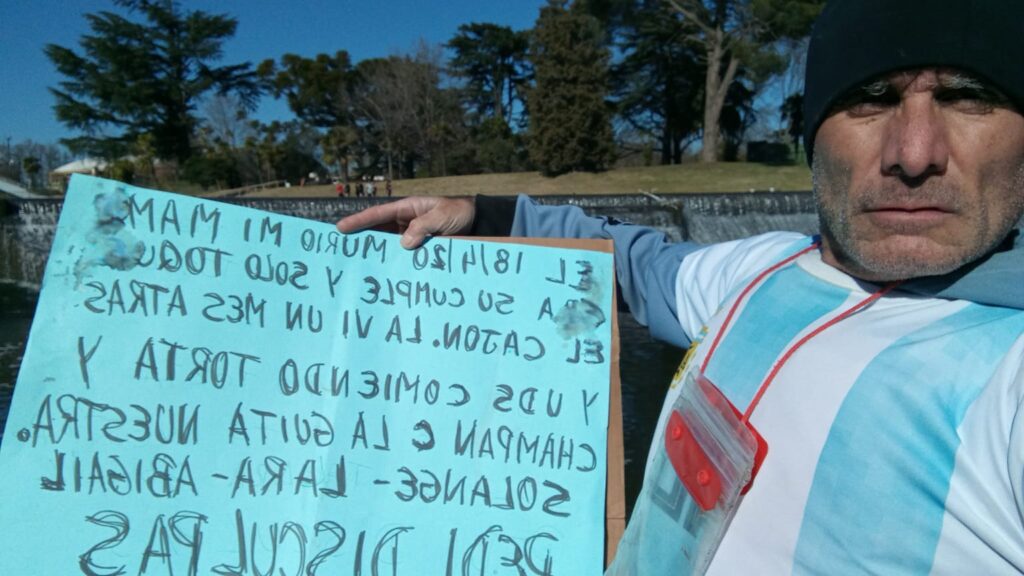 EL 18/4/20 MURIO MI MAM
ERA SU CUMPLE Y SOLO TOQU
EL CAJON. LA VI UN MES ATRAS
Y UDS COMIENDO TORTA Y
CHAMPAN C LA GUITA NUESTRA.
SOLANGE - LARA - ABIGAIL
PEDI DISCULPAS